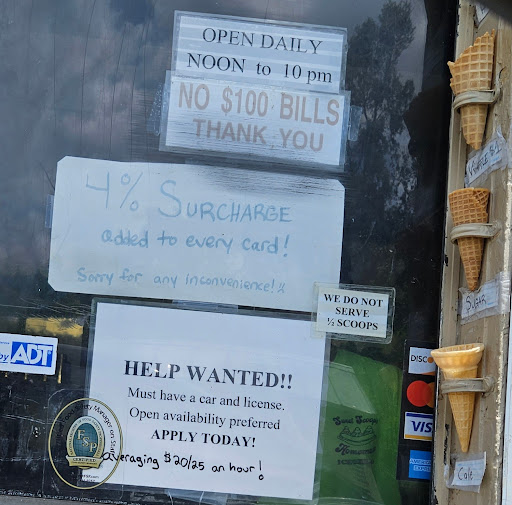 OPEN DAILY
NOON to 10 pm
NO $100 BILLS
THANK YOU
4% SURCHARGE
added to every card!
Sorry for any inconvenience!
WE DO NOT
SERVE
½ SCOOPS
HELP WANTED!!
Must have a car and license.
Open availability preferred
APPLY TODAY!
averaging $20/25 an hour!
by ADT
FSP
DISCO
VIS
AMERICAN
EXPRESS
SUGAR
Cake